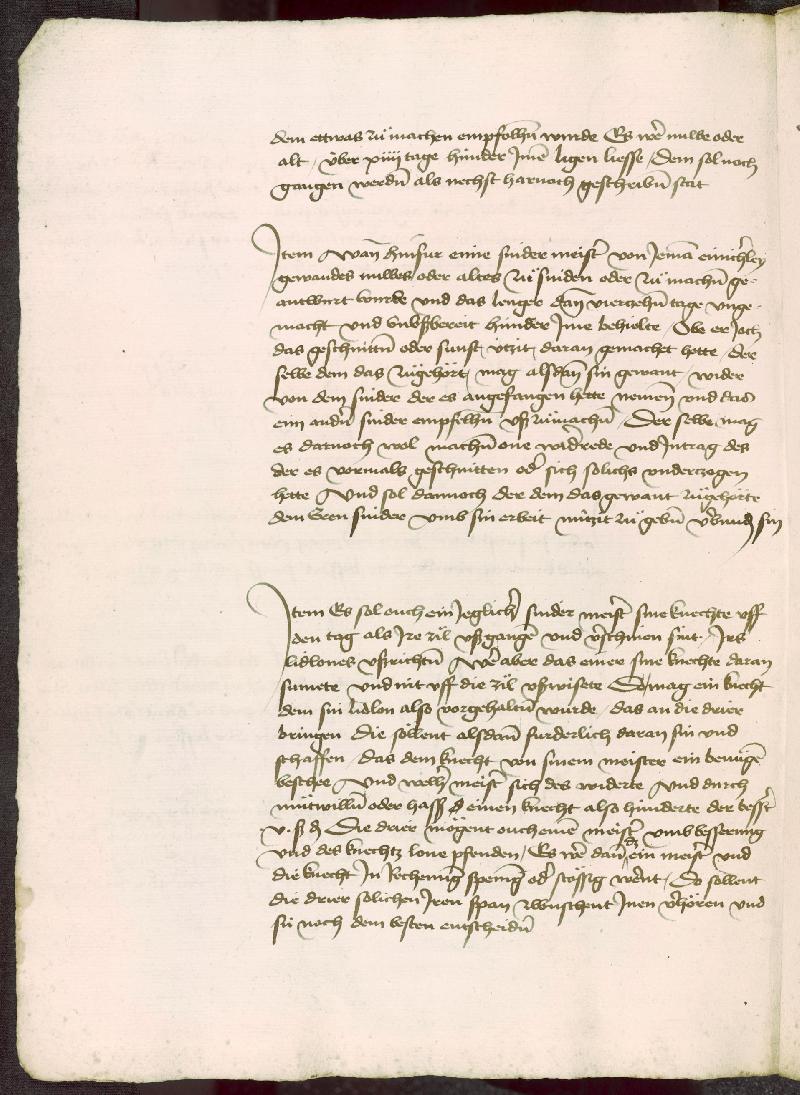 dem ettwas zů machen empfolhn̄ wurde Es wer̄ nuwe oder
alt / über xiiij tage hinder Jme ligen liesse / dem sol noch
gangen werdn̄ als nechst harnoch geschribn̄ stat
Jtem Wan̄ hinfur eime snider meist̄ von Jeman einich̄ley
gewandes nuwes oder altes zů sniden oder zů machn̄ ge-
antwurt wurde und das lenger dan̄ vierzehn̄ tage unge-
macht und unvszbereit hinder Jme behielte / Obe er Joch
das geschnittn̄ oder sunst ützit daran gemachet hette / der
selbe dem das zůgehört / mag alsdan̄ sin gewant / wider
von dem snider der es angefangen hette nemen und das
eim andn̄ snider empfelhn̄ vsz zů machn̄ / Der selbe mag
es darnoch wol machn̄ one widerrede und Jntrag des
der es vormals geschnitten oder sich solichs underzogen
hette Und sol dannoch der dem das gewant zůgehörte
dem Eren snider umb sin erbeit nützit zů gebn̄ v̄bund̄ sin
Jtem Es sol ouch ein Jeglich̄ snider meist̄ sine knechte vff
den tag als Jre zil vszgangen und v̄schinen sint / Jrs
lidlones vszrichtn̄ Wer̄ aber das einer sine knechte daran
sumete und nit vff die zil vszwisete So mag ein knecht
dem sin lidlon also vorgehaltn̄ wurde / das an die drier
bringen Die söllent alsdan̄ furderlich daran sin und
schaffen / das dem knecht von sinem meister ein benügen
beschee Und welh̄ meist̄ sich des widerte Und durch
mütwilln̄ oder hassz einen knecht also hinderte der bessert
v . sz d Die drier mögent ouch einē meist̄ umb besserung
und des knechtz lone pfenden / Es wer̄ dan̄ dz ein meist̄ und
die knecht Jn Rechenung spenig oder stössig werent / So sollent
die drier solichen Jren span zwuschent Jnen v̄hören und
sü noch dem besten entscheidn̄